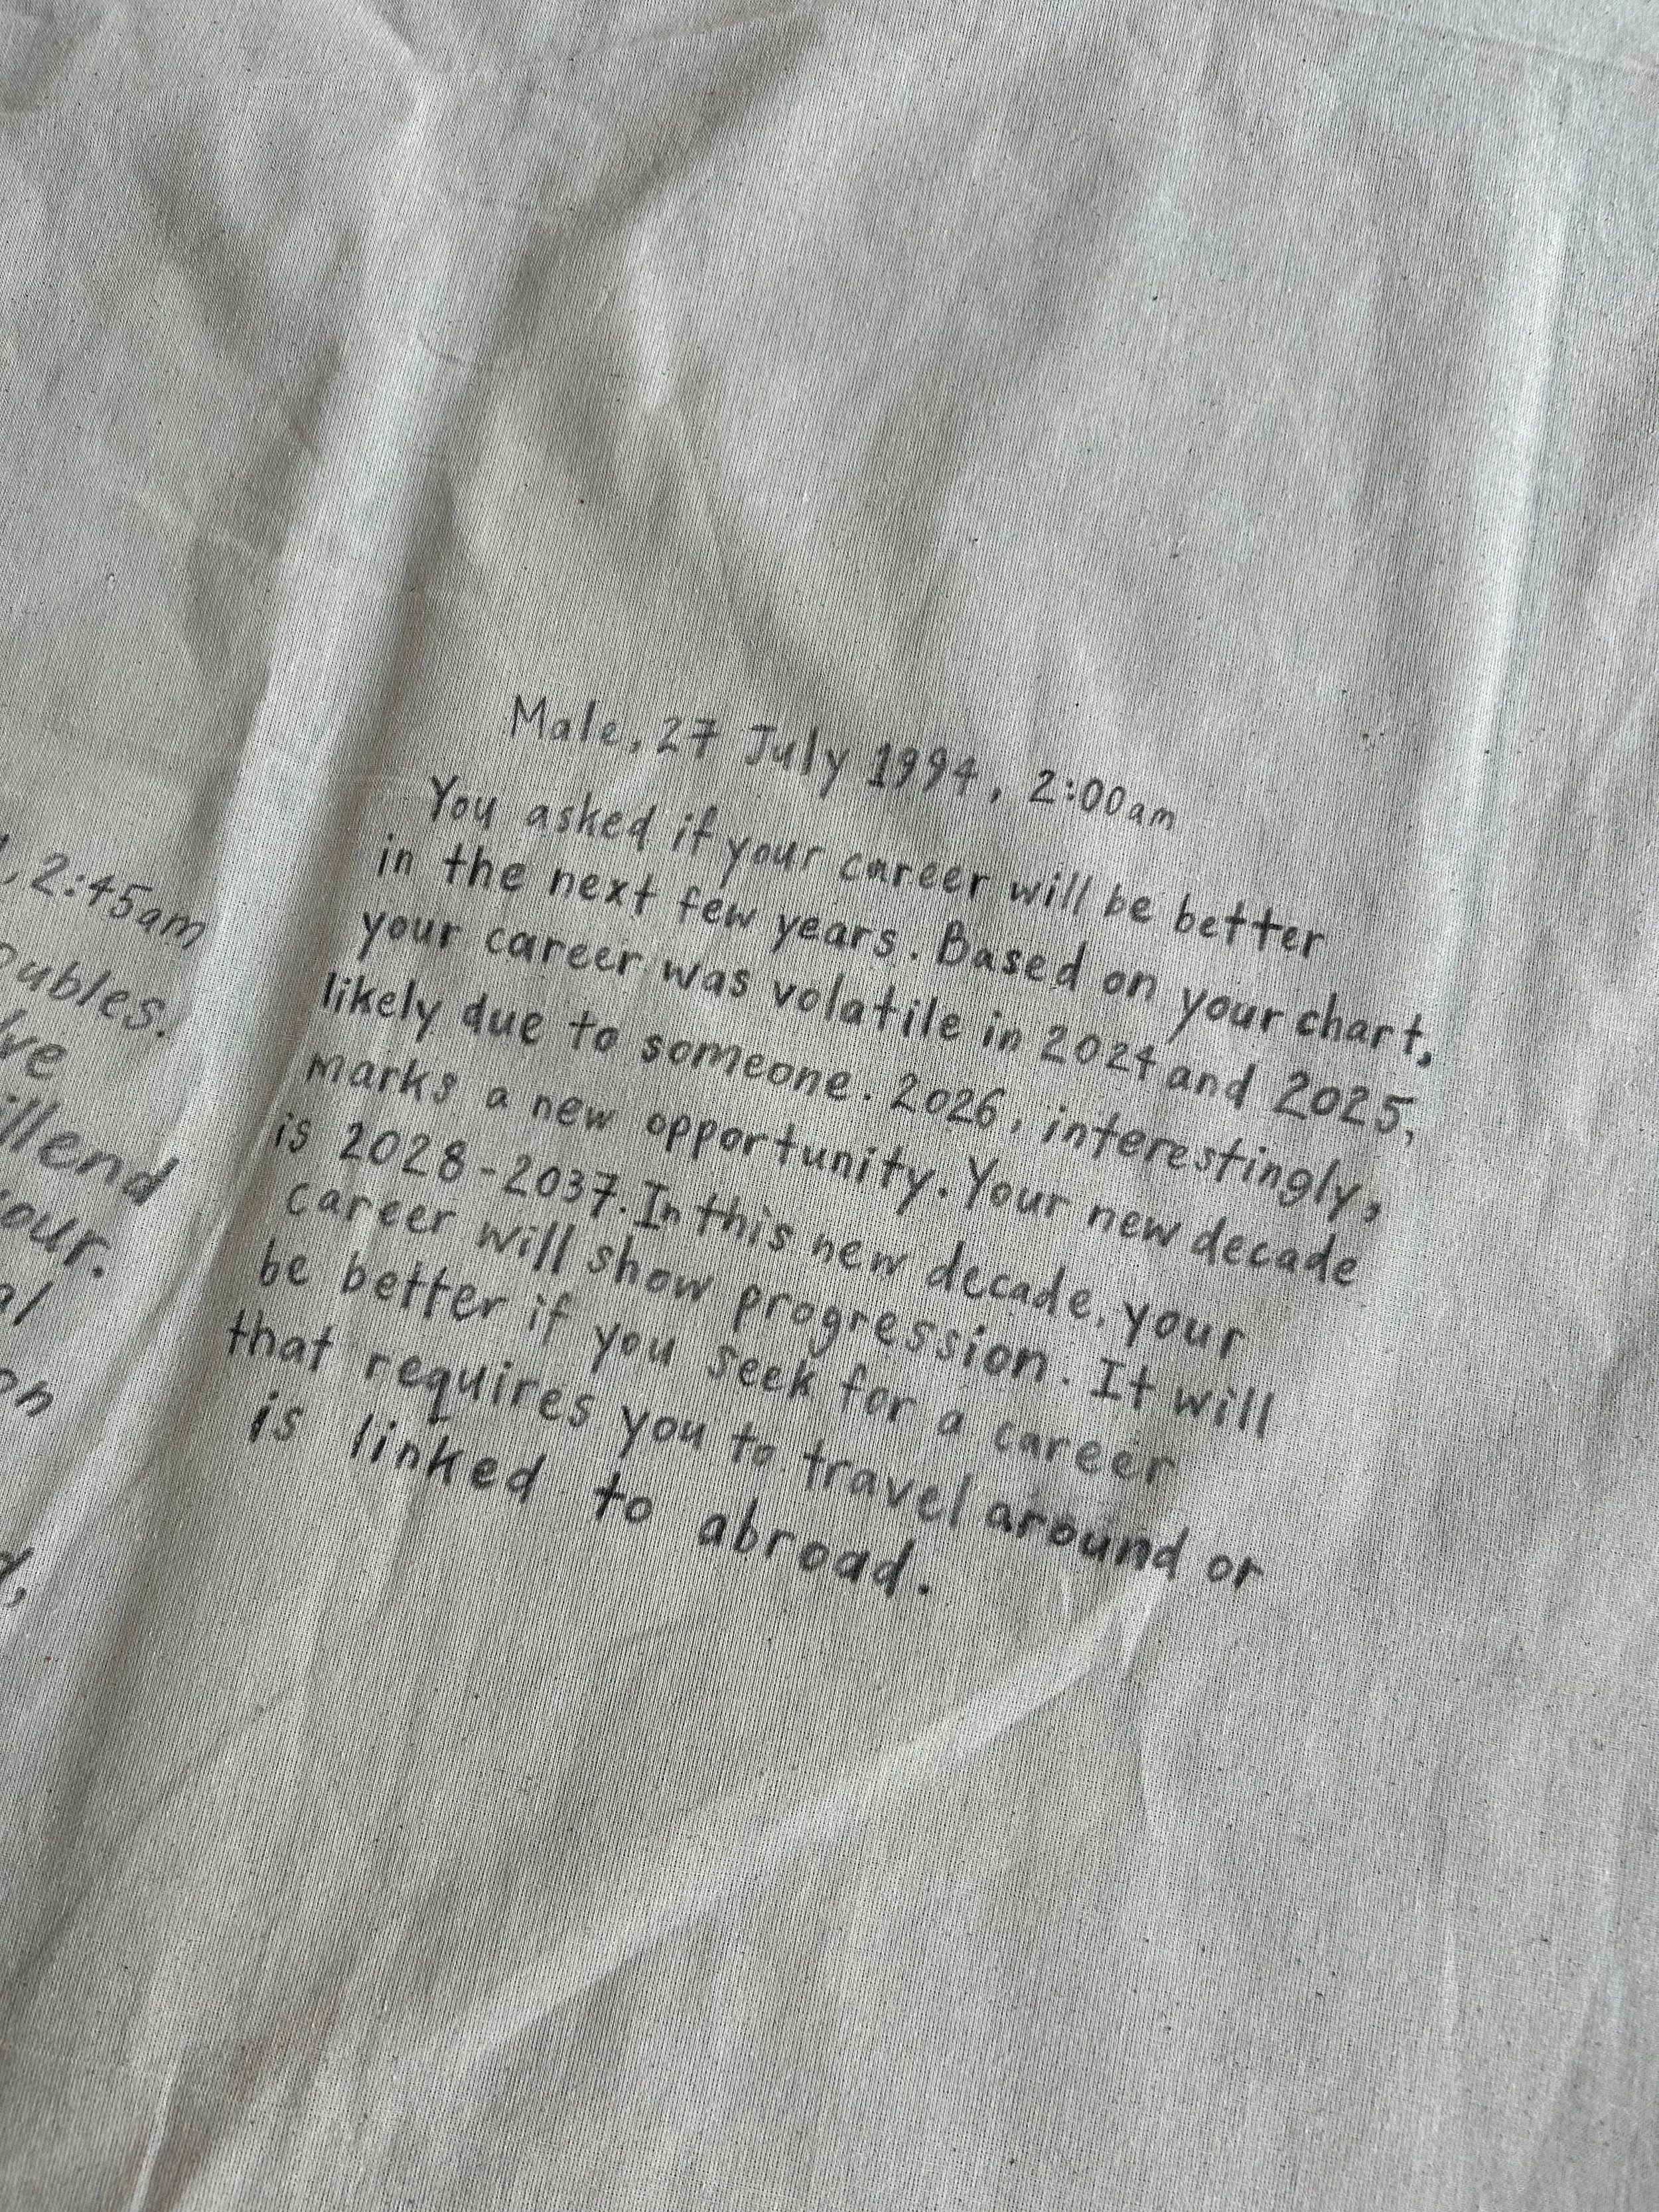 Male, 27 July 1994, 2:00am
You asked if your career will be better
in the next few years. Based on your chart,
your career was volatile in 2024 and 2025,
likely due to someone. 2026, interestingly,
marks a new opportunity. Your new decade
is 2028-2037. In this new decade, your
career will show progression. It will
be better if you seek for a career
that requires you to travel around or
is linked to abroad.
, 2:45am
our.